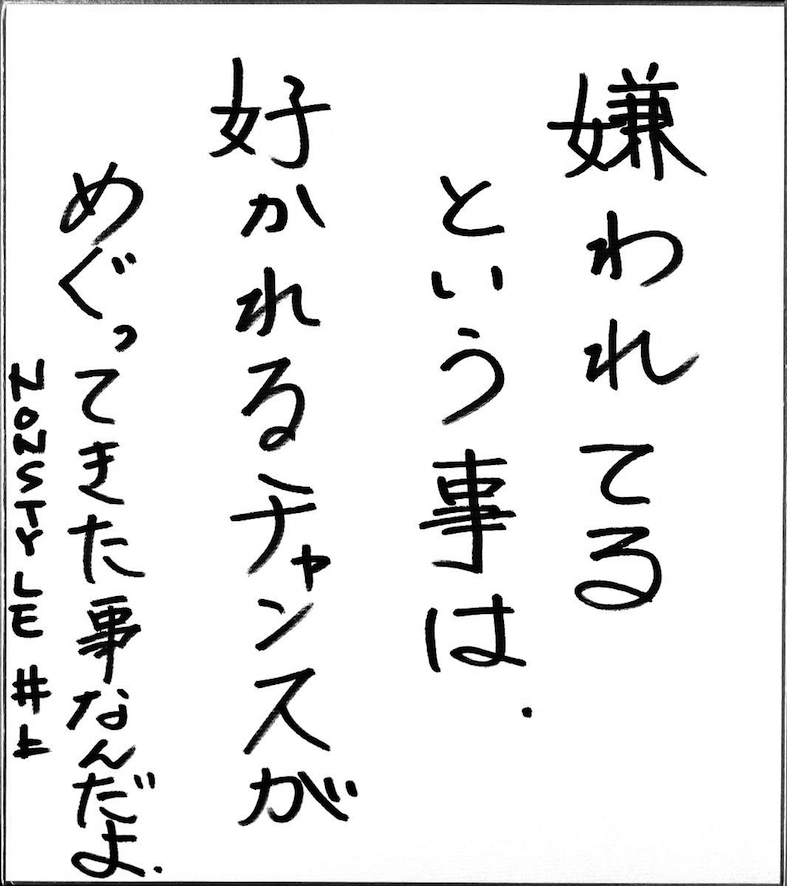 嫌われてる
という事は.
好かれるチャンスが
めぐってきた事なんだよ.
NONSTYLE 井上